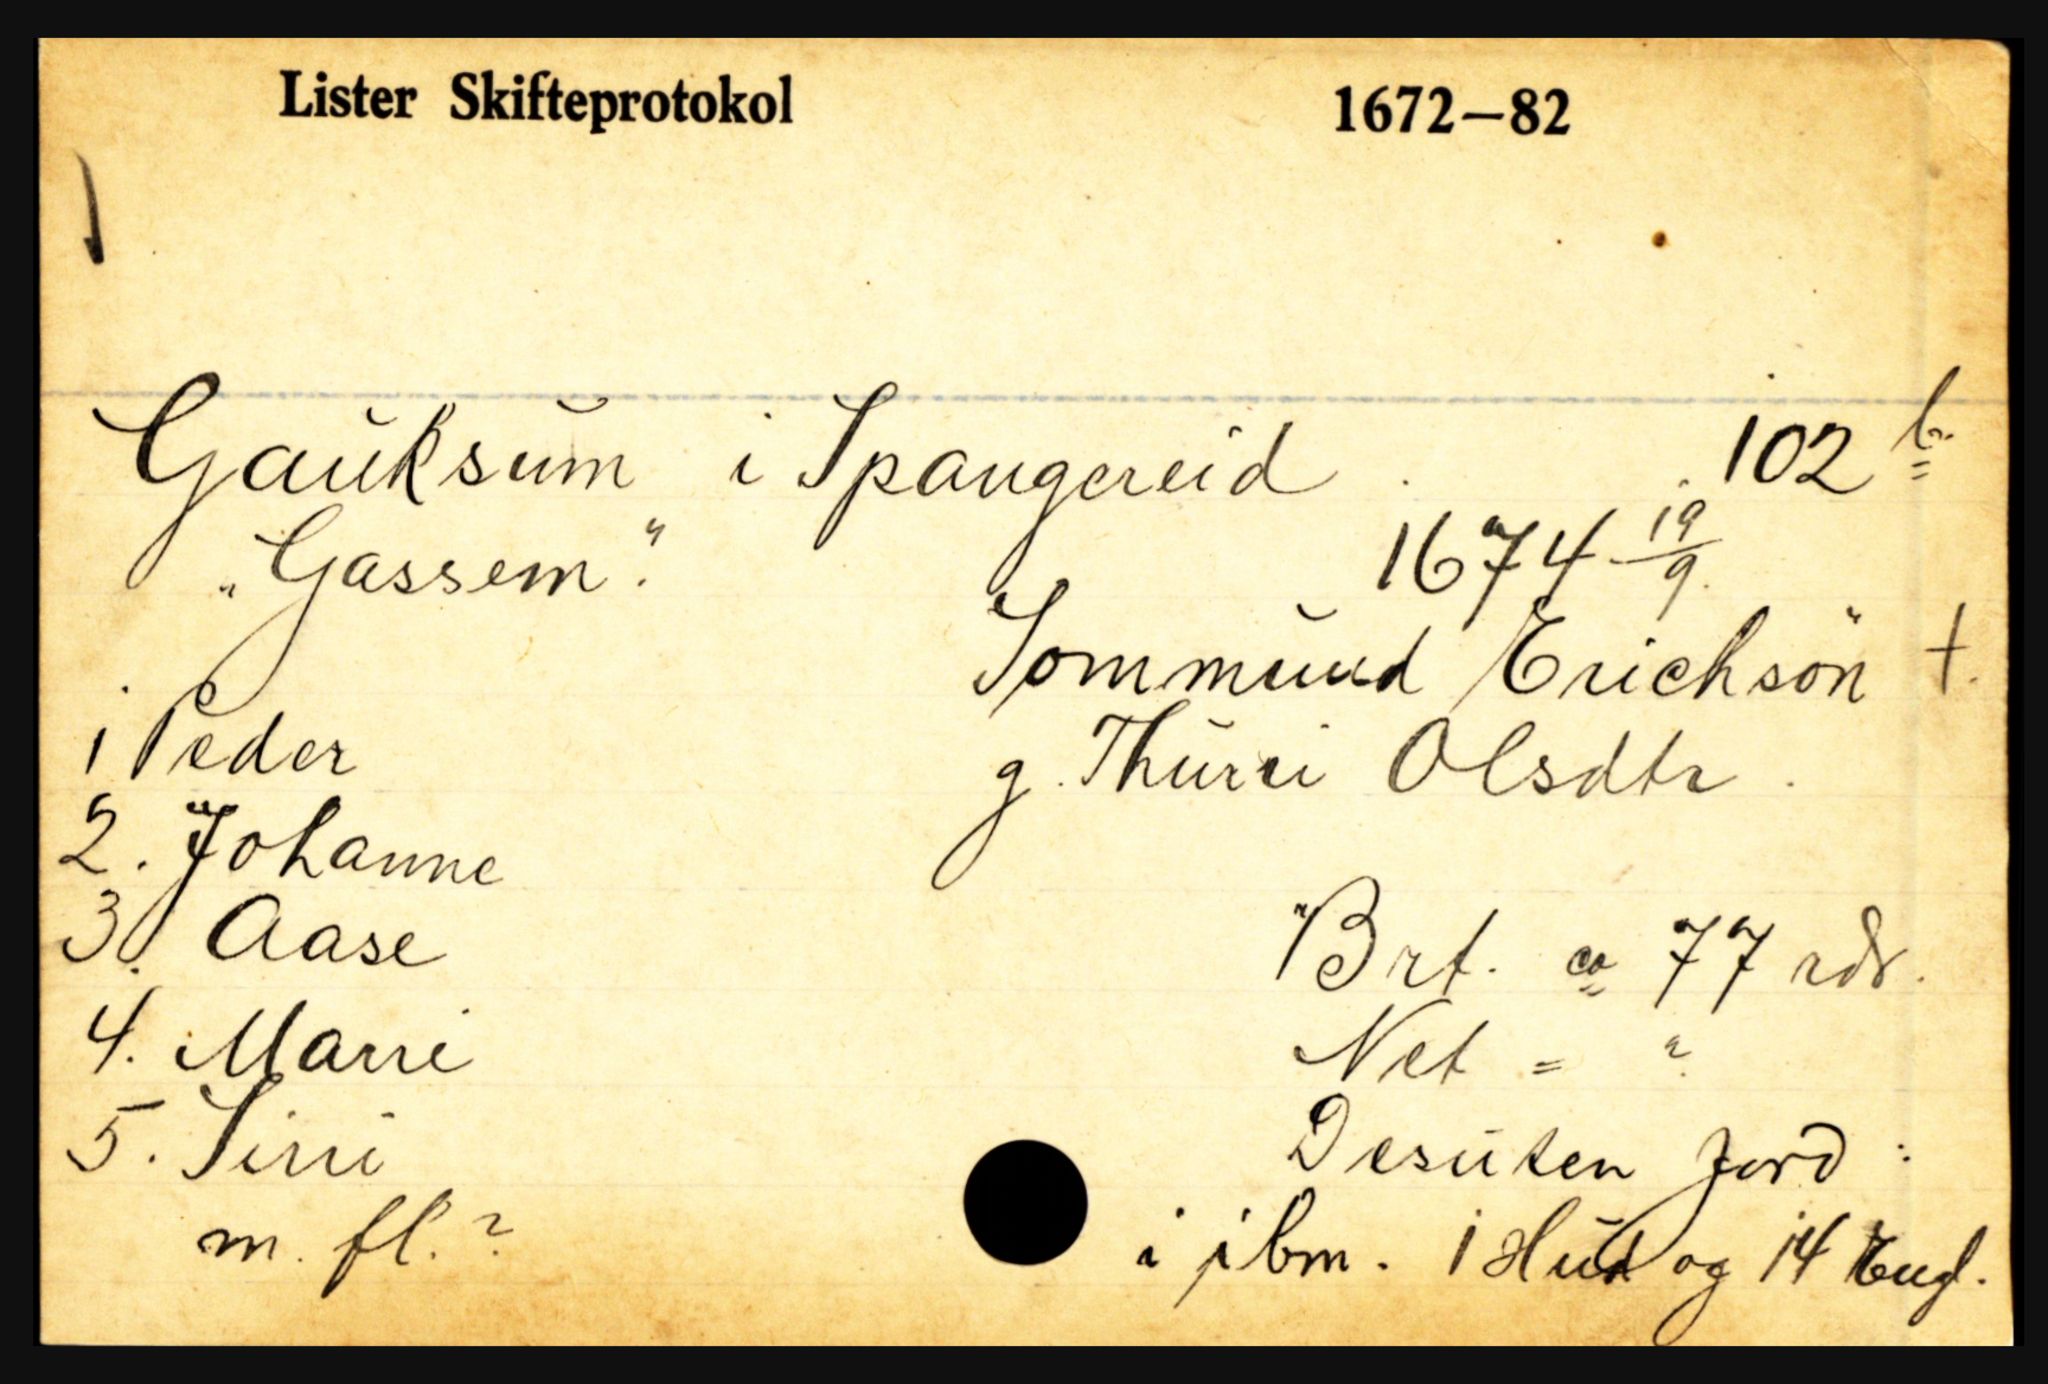 Lister Skifteprotokol 1672–82
Gauksum i Spangereid 102 b.
"Gassem". 1674 19/9.
Tommund Erichsön †.
g. Thurri Olsdtr.
1 Peder
2. Johanne
3. Aase
4. Marri
5. Sirri
m. fl.?
Brt. ca 77 rdr.
Net = ?
Desuten Jord:
i ibm. 1 Hud og 14 Engl.